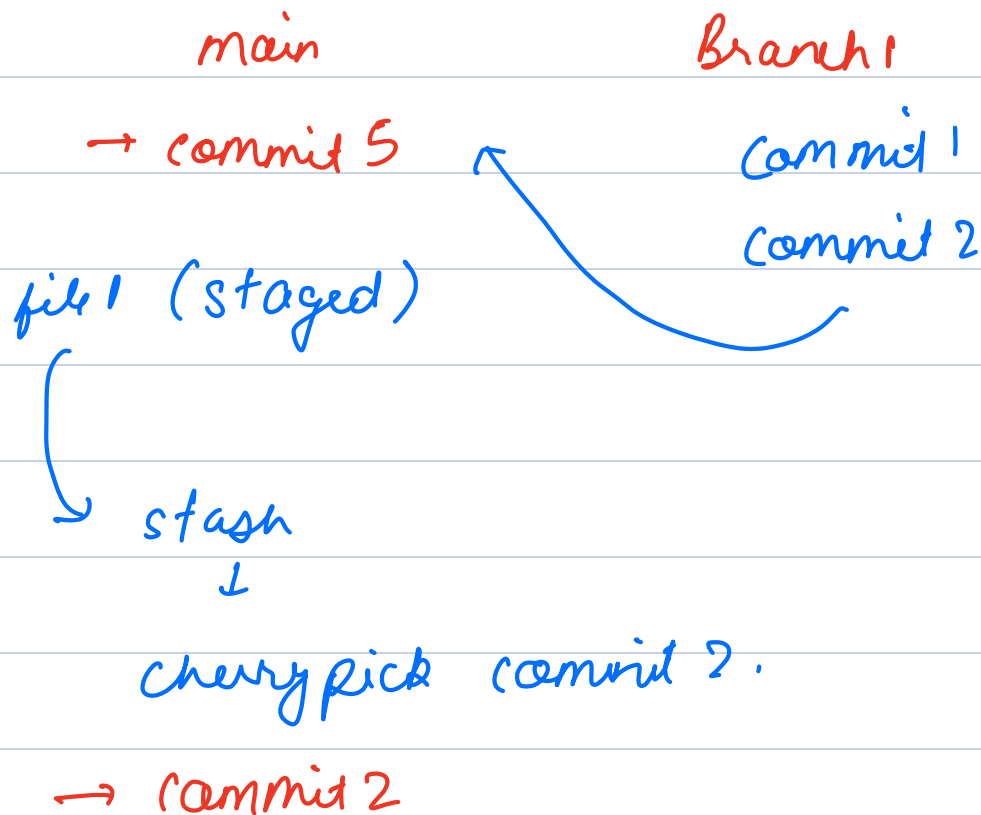 main Branch 1
→ commit 5 commit 1
commit 2
file 1 (staged)
stash
↓
cherrypick commit 2.
→ commit 2